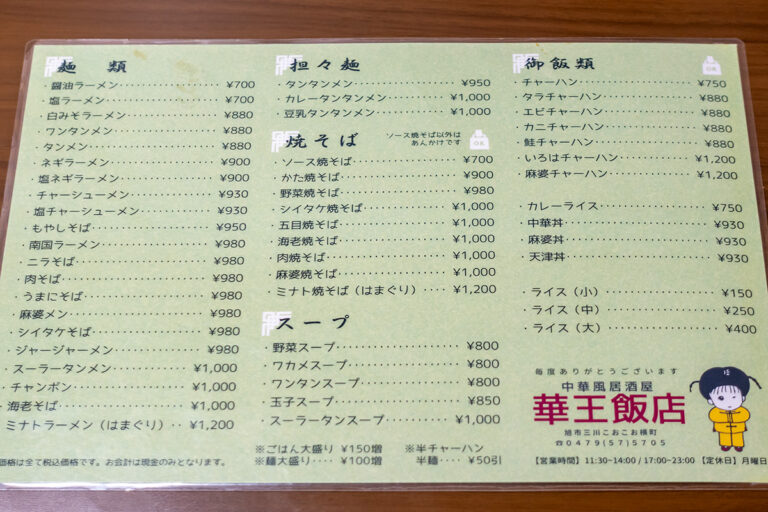 麺 類
・醤油ラーメン……………¥700
・塩ラーメン……………¥700
・白みそラーメン……………¥880
・ワンタンメン……………¥880
・タンメン……………¥880
・ネギラーメン……………¥900
・塩ネギラーメン……………¥900
・チャーシューメン……………¥930
・塩チャーシューメン……………¥930
・もやしそば……………¥950
・南国ラーメン……………¥980
・ニラそば……………¥980
・肉そば……………¥980
・うまにそば……………¥980
・麻婆メン……………¥980
・シイタケそば……………¥980
・ジャージャーメン……………¥980
・スーラータンメン……………¥1,000
・チャンポン……………¥1,000
・海老そば……………¥1,000
・ミナトラーメン(はまぐり)‥ ¥1,200
価格は全て税込価格です。お会計は現金のみとなります。
担々麺
・タンタンメン……………¥950
・カレータンタンメン……………¥1,000
・豆乳タンタンメン……………¥1,000
焼そば
ソース焼そば以外は
あんかけです
OK
・ソース焼そば……………¥700
・かた焼そば……………¥900
・野菜焼そば……………¥980
・シイタケ焼そば……………¥1,000
・五目焼そば……………¥1,000
・海老焼そば……………¥1,000
・肉焼そば……………¥1,000
・麻婆焼そば……………¥1,000
・ミナト焼そば(はまぐり)‥‥ ¥1,200
スープ
・野菜スープ……………¥800
・ワカメスープ……………¥800
・ワンタンスープ……………¥800
・玉子スープ……………¥850
・スーラータンスープ……………¥1,000
※ごはん大盛り ¥150増
※麺大盛り‥‥ ¥100増
※半チャーハン
半麺‥‥ ¥50引
御飯類
OK
・チャーハン……………¥750
・タラチャーハン……………¥880
・エビチャーハン……………¥880
・カニチャーハン……………¥880
・鮭チャーハン……………¥880
・いろはチャーハン……………¥1,200
・麻婆チャーハン……………¥1,200
・カレーライス……………¥750
・中華丼……………¥930
・麻婆丼……………¥930
・天津丼……………¥930
・ライス(小)……………¥150
・ライス(中)……………¥250
・ライス(大)……………¥400
毎度ありがとうございます
中華風居酒屋
華王飯店
旭市三川こおこお横町
☎0479(57)5705
【営業時間】11:30~14:00 / 17:00~23:00 【定休日】月曜日